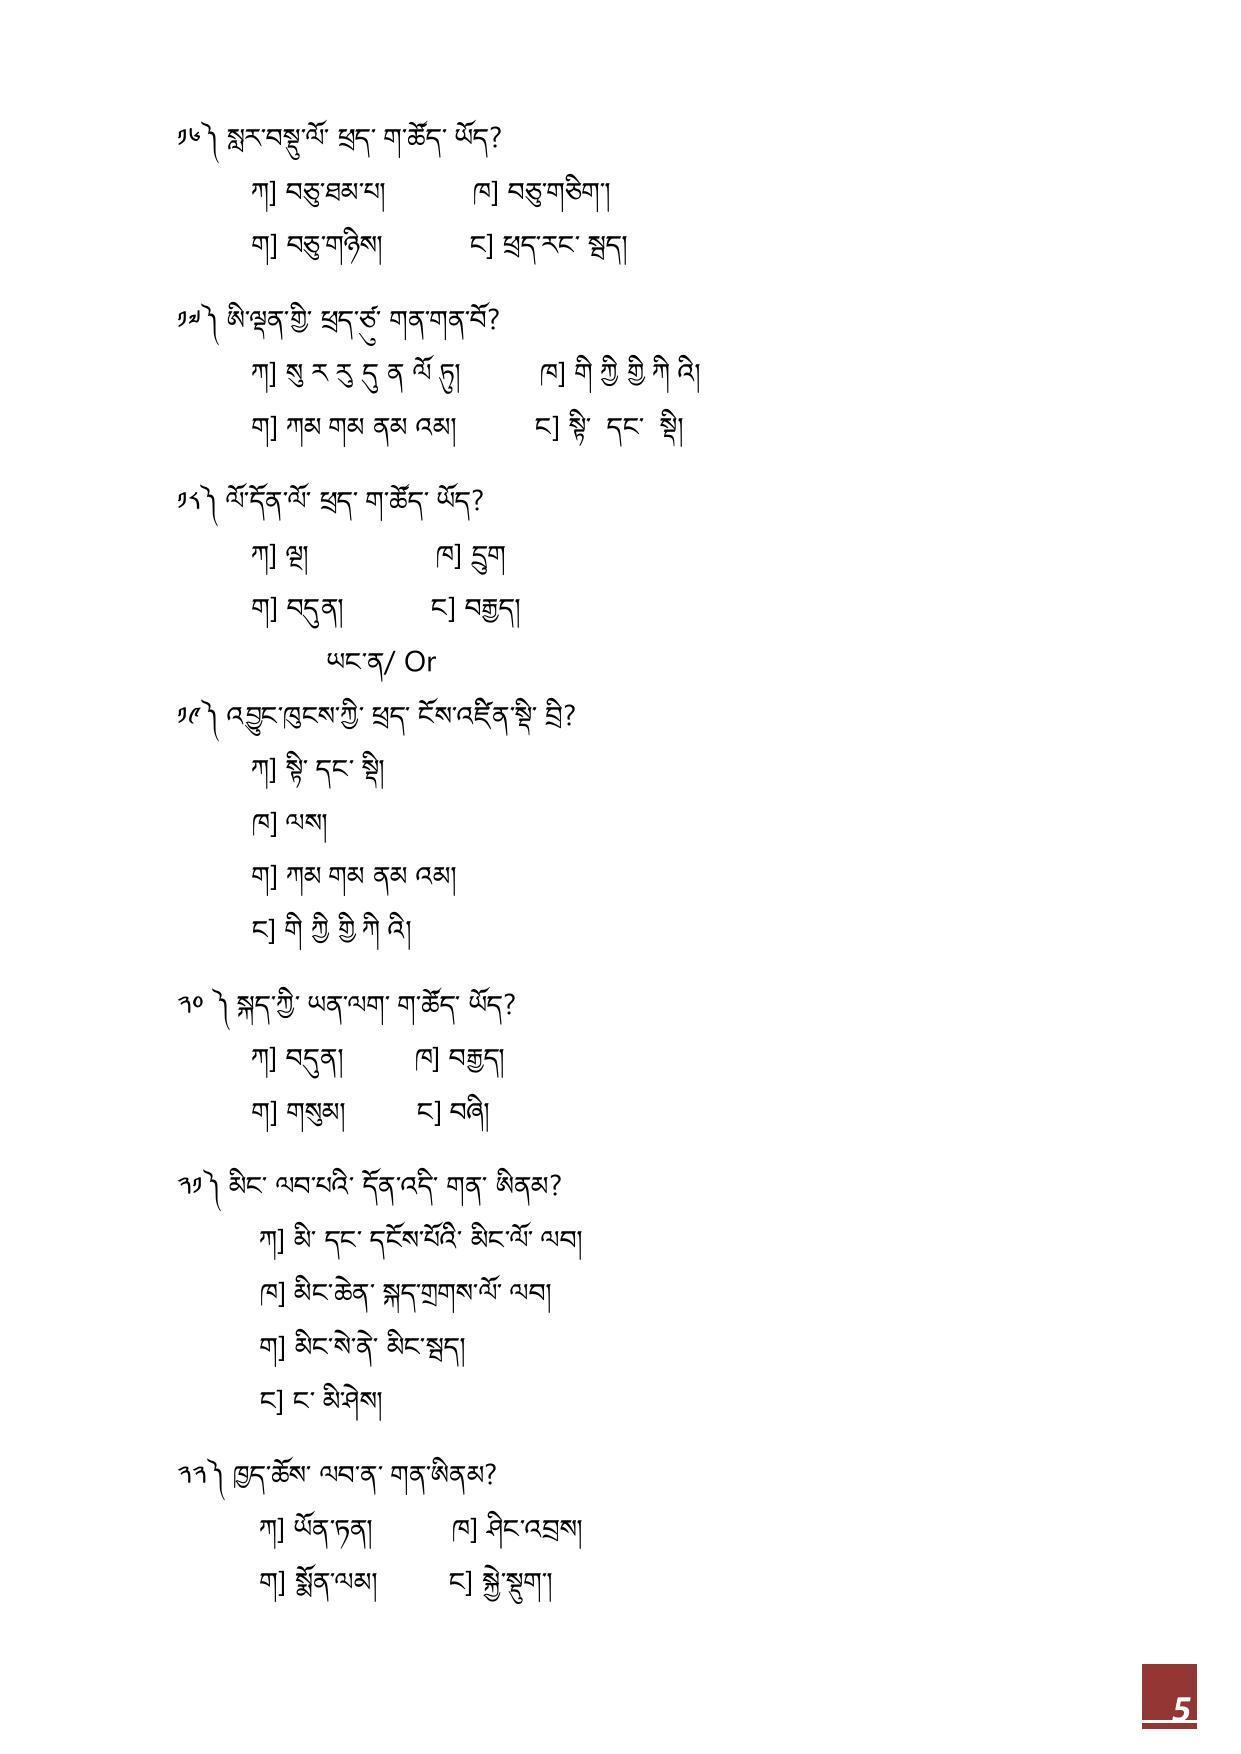 ༡༦༽ སླར་བསྡུ་ལོ་ ཕྲད་ ག་ཚོད་ ཡོད?
ཀ] བཅུ་ཐམ་པ། ཁ] བཅུ་གཅིག་།
ག] བཅུ་གཉིས། ང] ཕྲད་རང་ སྦད།
༡༧༽ ཨི་ལྡན་གྱི་ ཕྲད་ཙུ་ གན་གན་བོ?
ཀ] སུ ར རུ དུ ན ལོ ཏུ། ཁ] གི ཀྱི གྱི ཀི འི།
ག] ཀམ གམ ནམ འམ། ང] སྟི་ དང་ སྡི།
༡༨༽ ལོ་དོན་ལོ་ ཕྲད་ ག་ཚོད་ ཡོད?
ཀ] ལྔ། ཁ] དྲུག
ག] བདུན། ང] བརྒྱད།
ཡང་ན/ Or
༡༩༽ འབྱུང་ཁུངས་ཀྱི་ ཕྲད་ ངོས་འཛིན་སྡི་ བྲི?
ཀ] སྟི་ དང་ སྡི།
ཁ] ལས།
ག] ཀམ གམ ནམ འམ།
ང] གི ཀྱི གྱི ཀི འི།
༢༠ ༽ སྐད་ཀྱི་ ཡན་ལག་ ག་ཚོད་ ཡོད?
ཀ] བདུན། ཁ] བརྒྱད།
ག] གསུམ། ང] བཞི།
༢༡༽ མིང་ ལབ་པའི་ དོན་འདི་ གན་ ཨིནམ?
ཀ] མི་ དང་ དངོས་པོའི་ མིང་ལོ་ ལབ།
ཁ] མིང་ཆེན་ སྐད་གྲགས་ལོ་ ལབ།
ག] མིང་སེ་ནེ་ མིང་སྦད།
ང] ང་ མི་ཤེས།
༢༢༽ ཁྱད་ཆོས་ ལབ་ན་ གན་ཨིནམ?
ཀ] ཡོན་ཏན། ཁ] ཤིང་འབྲས།
ག] སྨོན་ལམ། ང] སྐྱེ་སྡུག་།
5